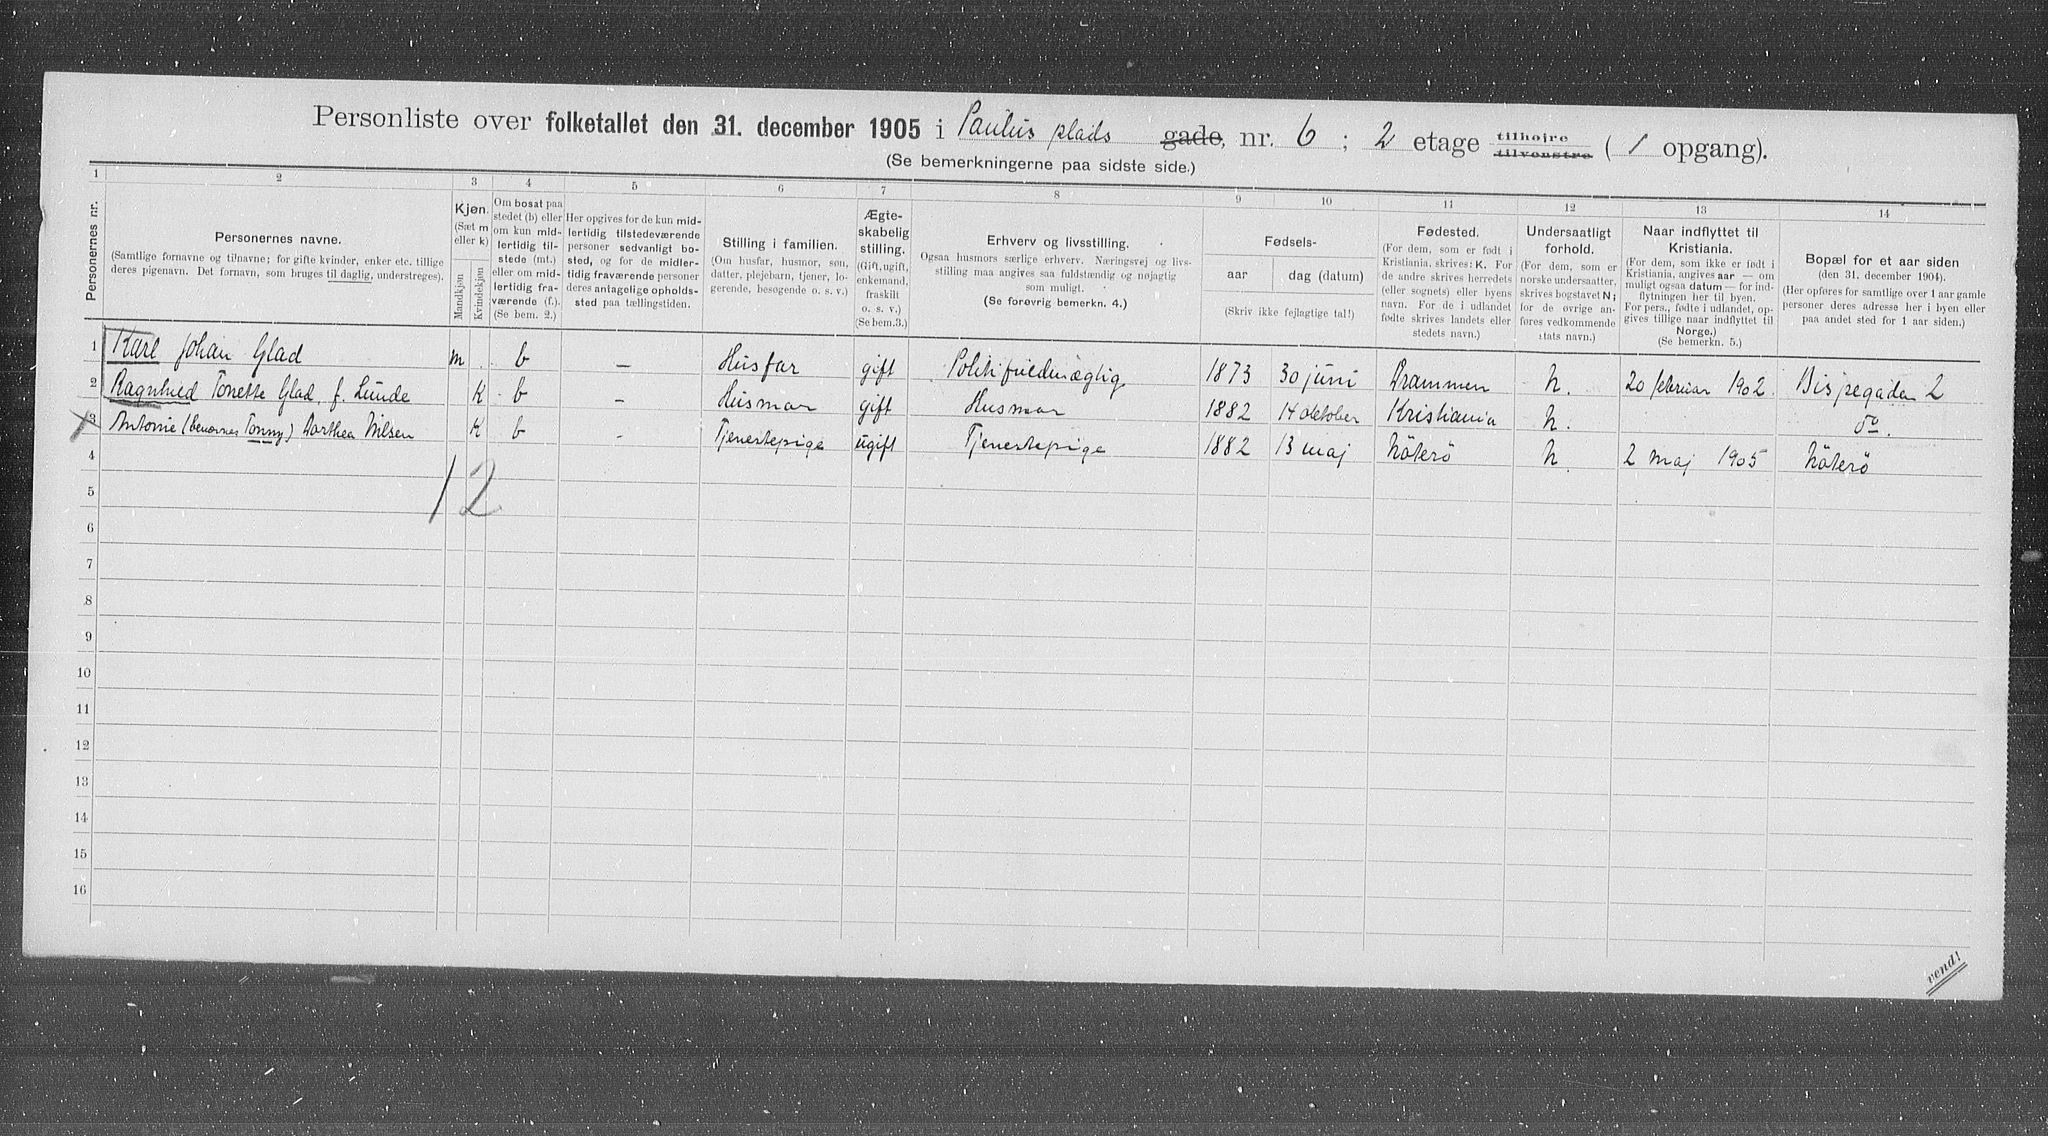 Personliste over folketallet den 31. december 1905 i Paulus plads gade, nr. 6 ; 2 etage tilhøire tilvenstre ( 1 opgang).
(Se bemerkningerne paa sidste side.)
1 2 3 4 5 6 7 8 9 10 11 12 13 14
Personernes nr.
Personernes navne.
(Samtlige fornavne og tilnavne; for gifte kvinder, enker etc. tillige
deres pigenavn. Det fornavn, som bruges til daglig, understreges).
Kjøn.
(Sæt m
eller k)
Mandkjøn
Kvindekjøn
Om bosat paa
stedet (b) eller
om kun mid-
lertidig til-
stede (mt.)
eller om mid-
lertidig fra-
værende (f.).
(Se bem. 2.)
Her opgives for de kun mid-
lertidig tilstedeværende
personer sedvanligt bo-
sted, og for de midler-
tidig fraværende personer
deres antagelige opholds-
sted paa tællingstiden.
Stilling i familien.
(Om husfar, husmor, søn,
datter, plejebarn, tjener, lo-
gerende, besøgende o. s. v.)
Ægte-
skabelig
stilling.
(Gift, ugift,
enkemand,
fraskilt
o. s. v.)
(Se bem. 3.)
Erhverv og livsstilling.
Ogsaa husmors særlige erhverv. Næringsvej og livs-
stilling maa angives saa fuldstændig og nøjagtig
som muligt.
(Se forøvrig bemerkn. 4.)
Fødsels-
aar
dag (datum)
(Skriv ikke fejlagtige tal!)
Fødested.
(For dem, som er født i
Kristiania, skrives: K. For
de andre skrives herredets
(eller sognets) eller byens
navn. For de i udlandet
fødte skrives landets eller
stedets navn.)
Undersaatligt
forhold.
(For dem, som er
norske undersaatter,
skrives bogstavet N;
for de øvrige an-
føres vedkommende
stats navn.)
Naar indflyttet til
Kristiania.
(For dem, som ikke er født i
Kristiania, angives aar — om
muligt ogsaa datum — for ind-
flytningen her til byen.
For pers., fødte i udlandet, op-
gives tillige naar indflyttet til
Norge.)
(Se bemerkn. 5.)
Bopæl for et aar siden
(den 31. december 1904).
(Her opføres for samtlige over 1 aar gamle
personer deres adresse her i byen eller
paa andet sted for 1 aar siden.)
1 Karl Johan Glad m b — Husfar gift Politifuldmægtig 1873 30 juni Drammen N. 20 februar 1902. Bispegaden 2
2 Ragnhild Tonette Glad, f. Lunde K b - Husmor gift Husmor 1882 14 oktober Kristiania N. do.
3 Antonie (benævnes Tonny) Dorthea Nilsen K b - Tjenestepige ugift Tjenestepige 1882 13 maj Nøterø N. 2 maj 1905 Nøterø
4
1 2
5
6
7
8
9
10
11
12
13
14
15
16
vend!